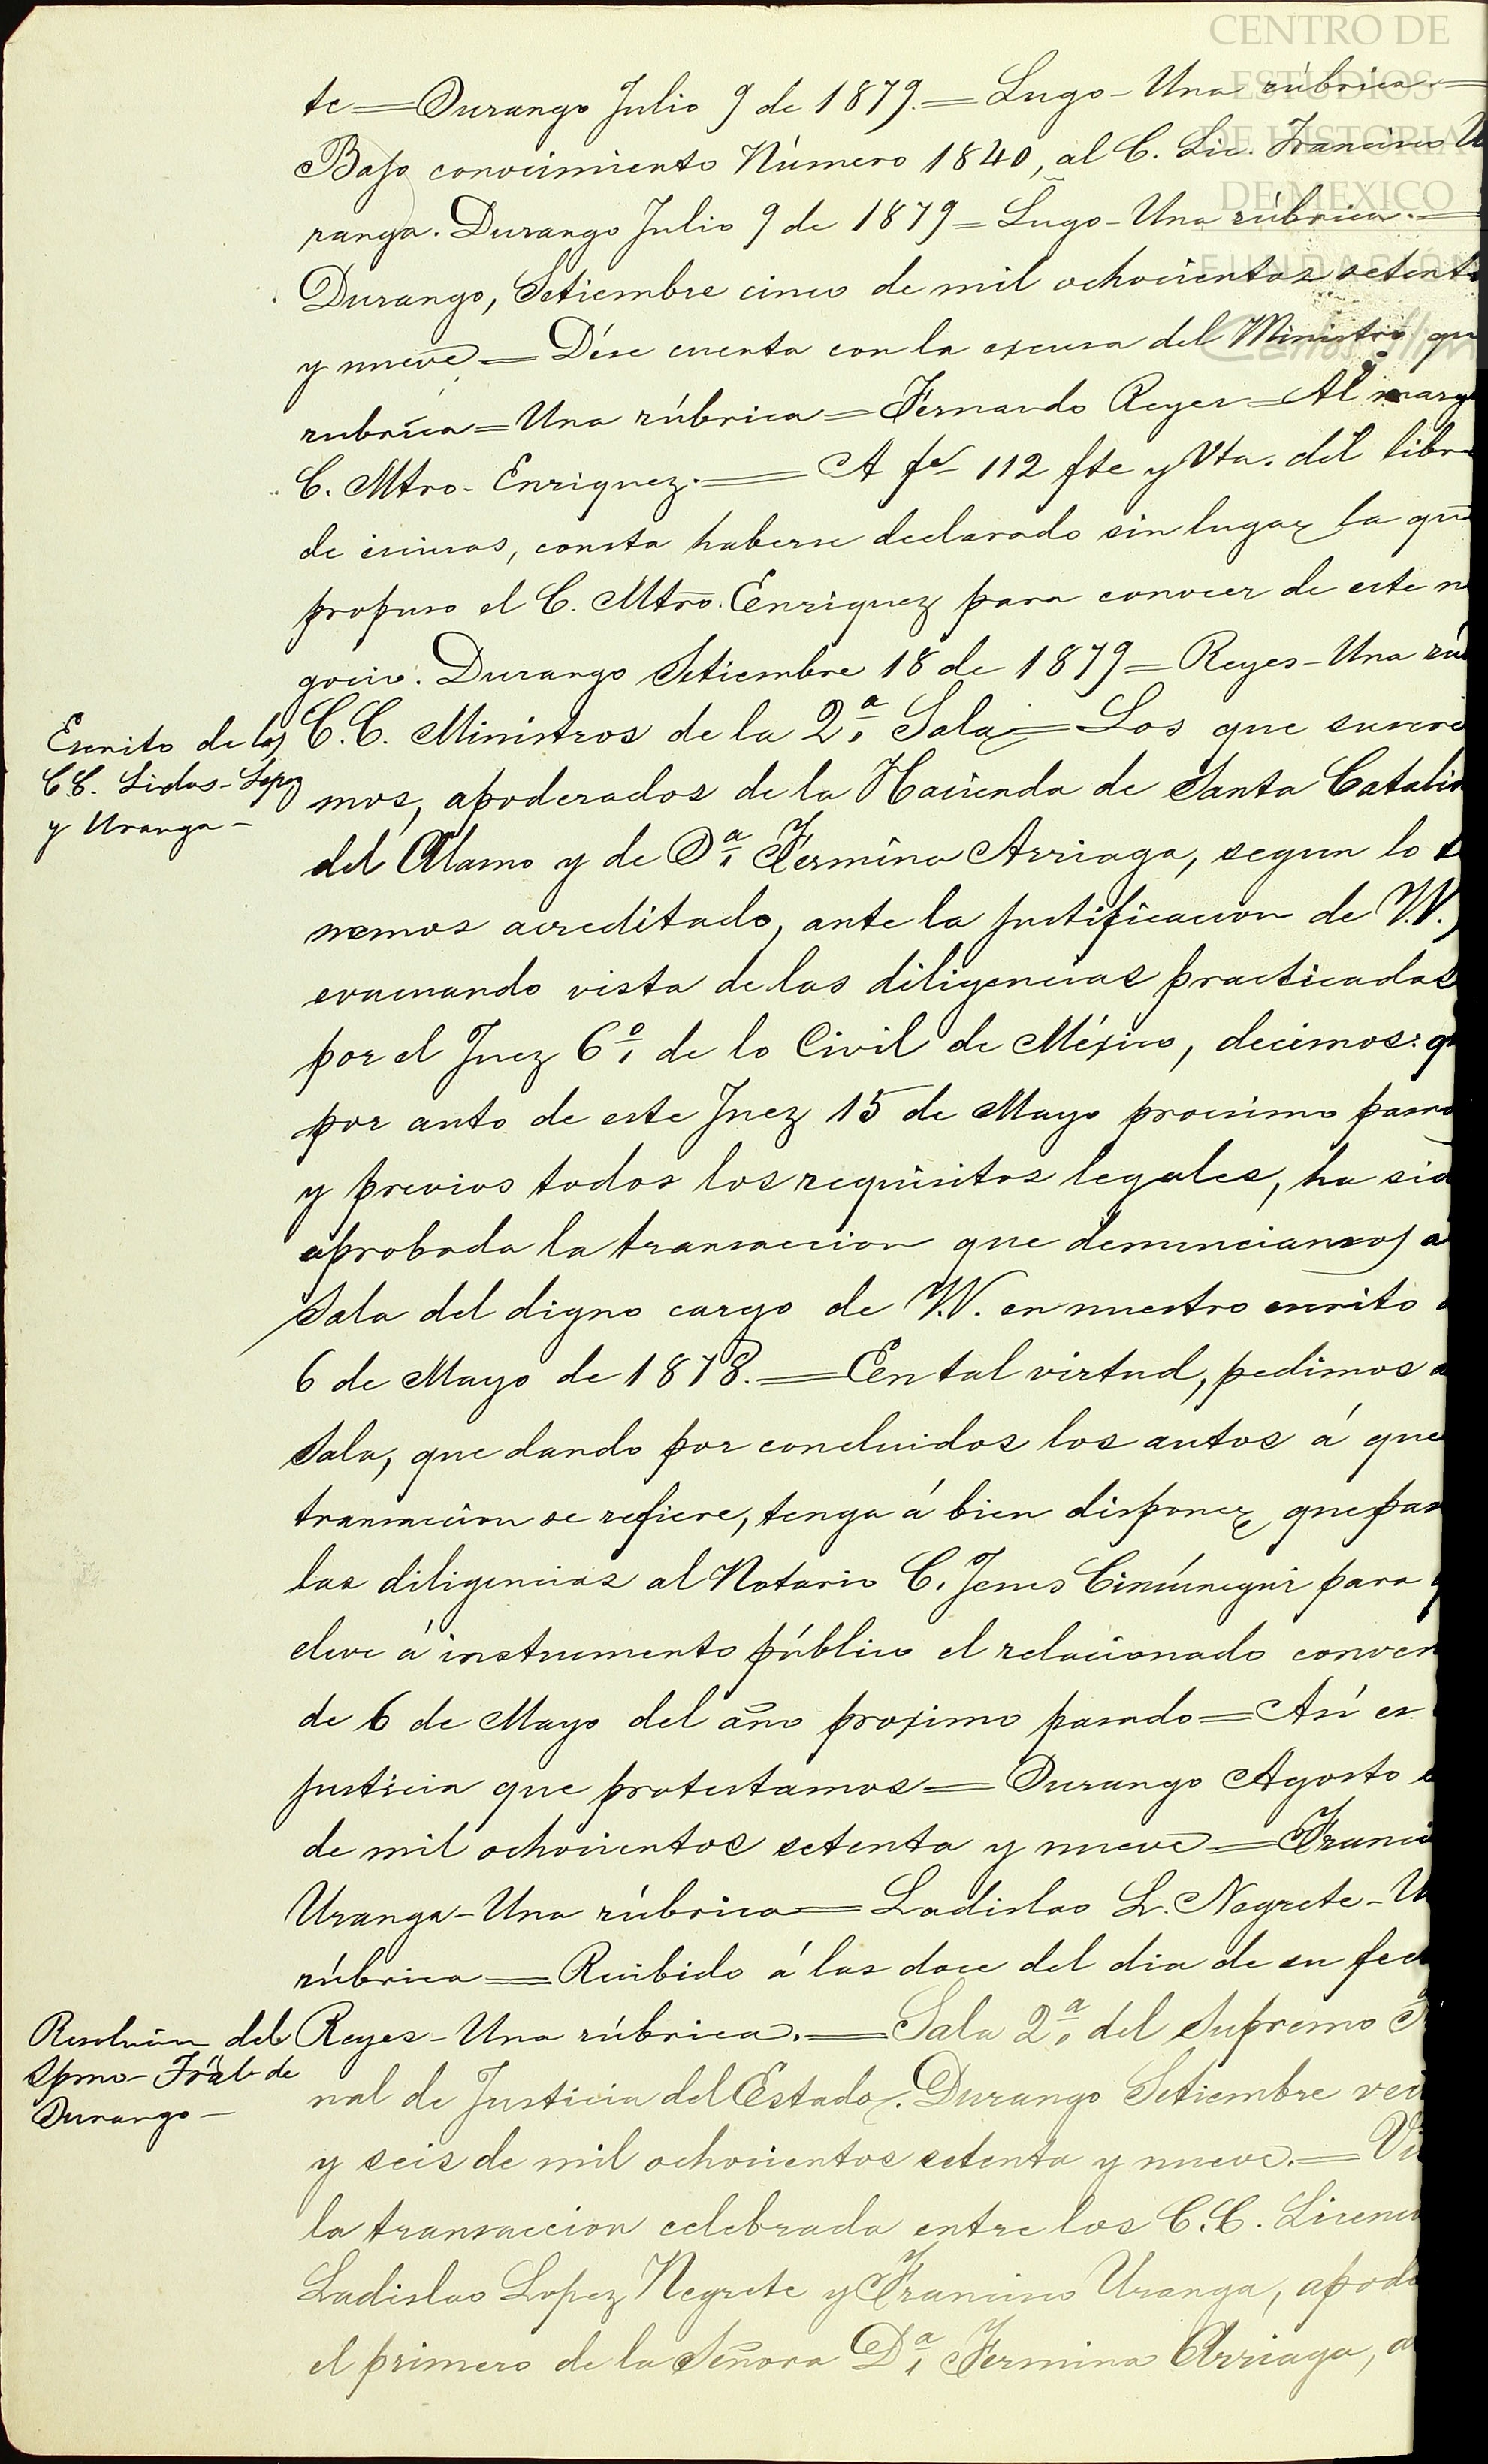 CENTRO DE
ESTUDIOS
DE HISTORIA
DE MEXICO
FUNDACIÓN
te = Durango Julio 9 de 1879. = Lugo - Una rúbrica. =
Bajo conocimiento Número 1840, al C. Lic. Francisco U
ranga. Durango Julio 9 de 1879 = Lugo - Una rúbrica. =
Durango, Setiembre cinco de mil ochocientos setenta
y nueve = Dése cuenta con la excusa del Ministro qu
rubríca = Una rúbrica = Fernando Reyes = Al marg
C. Mtro. Enriquez. = A fs 112 fte y Vta. del libro
de excusas, consta haberse declarado sin lugar la que
propuso el C. Mtro. Enriquez para conocer de este ne
gocio. Durango Setiembre 18 de 1879 = Reyes - Una rú
Escrito de los
C.C. Lidos - Lopez
y Uranga -
C.C. Ministros de la 2ª Sala = Los que suscri
mos, apoderados de la Hacienda de Santa Catalin
del Alamo y de Dª Fermina Arriaga, segun lo te
nemos acreditado, ante la justificacion de V.V.,
evacuando vista de las diligencias practicadas
por el Juez 6º de lo Civil de México, decimos: qu
por auto de este Juez 15 de Mayo procsimo pasa
y previos todos los requisitos legales, ha sid
aprobada la transaccion que denunciamos a
Sala del digno cargo de V.V. en nuestro escrito
6 de Mayo de 1878. = En tal virtud, pedimos a
Sala, que dando por concluidos los autos á que
transaccion se refiere, tenga á bien disponer que pas
las diligencias al Notario C. Jesus para
eleve á instrumento público el relacionado conven
de 6 de Mayo del año proximo pasado = Así es
justicia que protestamos = Durango Agosto
de mil ochocientos setenta y nueve = Franci
Uranga - Una rúbrica = Ladislao L. Negrete - U
rúbrica = Recibido á las doce del dia de su fec
Resolucion del
Spmo - Trãl de
Durango -
Reyes - Una rúbrica. = Sala 2ª del Supremo
nal de Justicia del Estado. Durango Setiembre vei
y seis de mil ochocientos setenta y nueve. = Vi
la transaccion celebrada entre los C.C. Licenci
Ladislao Lopez Negrete y Francisco Uranga, apode
el primero de la Señora Dª Fermina Arriaga, a